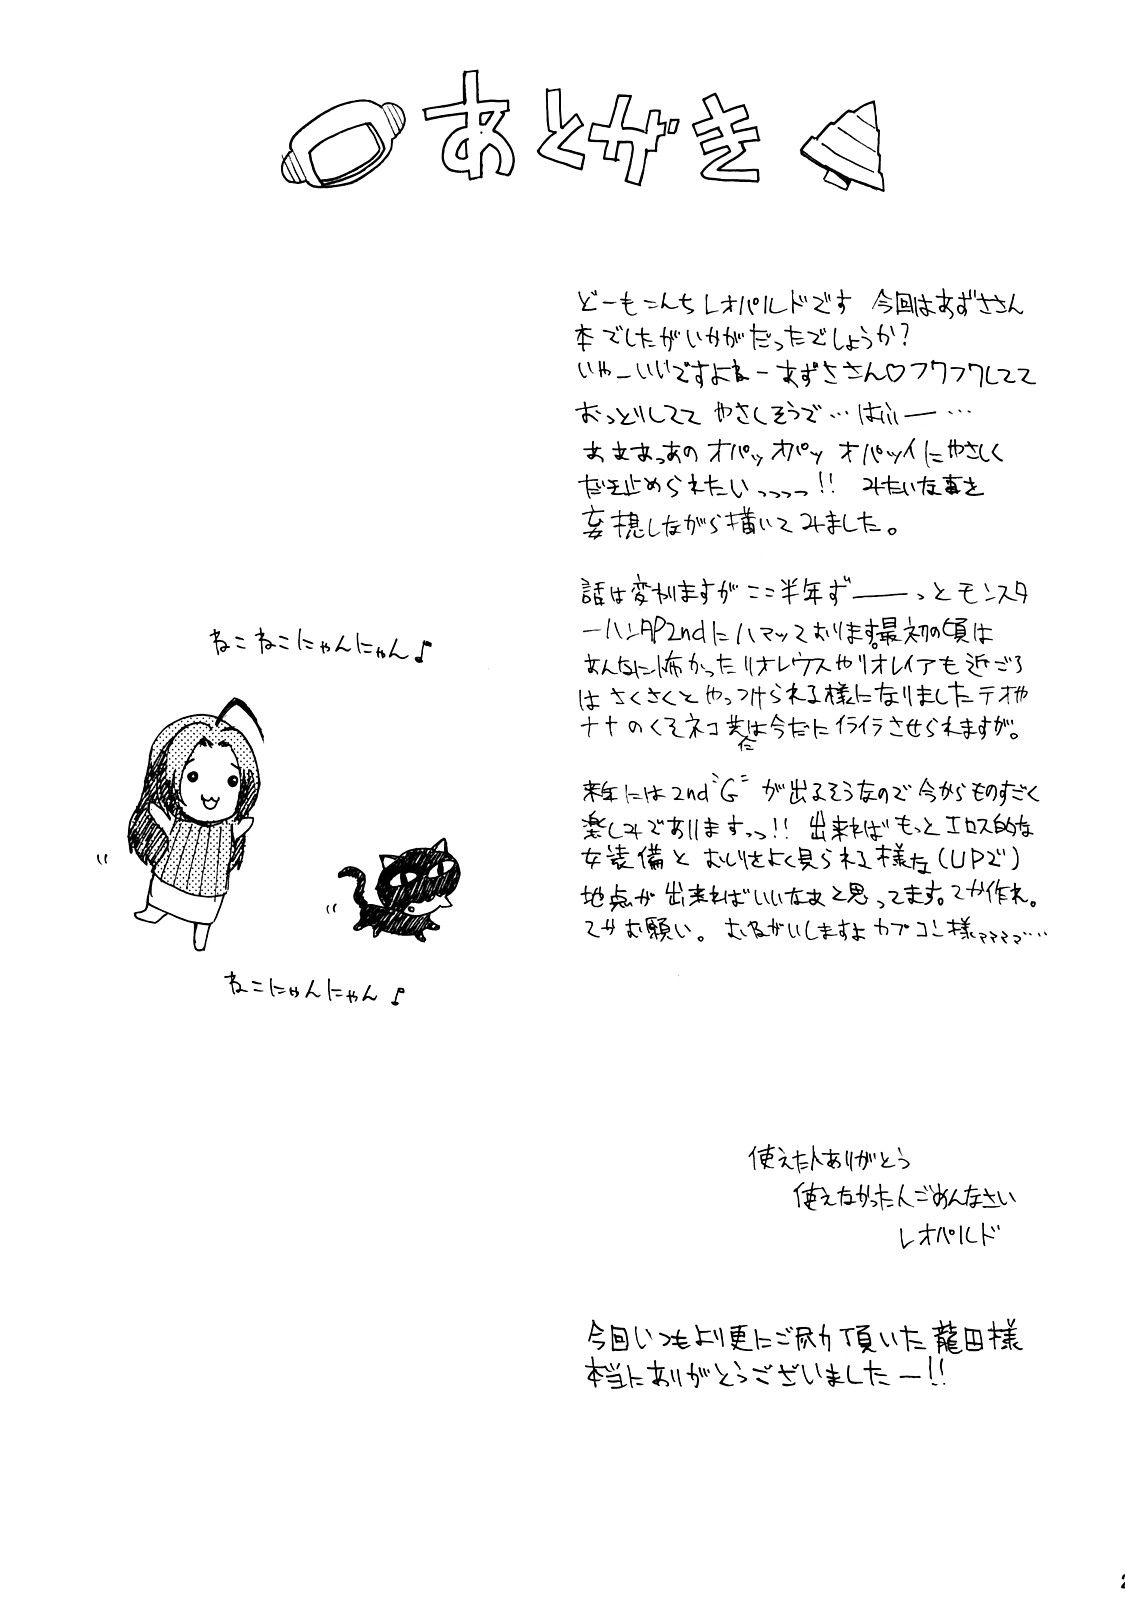 あとがき
どーもこんちレオパルドです 今回はあずささん
本でしたがいかがだったでしょうか?
いやーいいですよねーあずささん♡フワフワしてて
おっとりしてて やさしそうで…はふぅー…
あぁまっあの オパッ オパッ オパッイにやさしく
だき止められたいっっっっ!! みたいな事を
妄想しながら描いてみました。
話は変わりますがここ半年ず――っとモンスタ
ーハンターP2ndにハマッております。最初の頃は
あんなに怖かったリオレウスやリオレイアも近ごろ
はさくさくとやっつけられる様になりましたテオや
ナナのくそネコ共には今だにイライラさせられますが。
来年には2nd"G"が出るそうなので今からものすごく
楽しみでありますっっ!! 出来ればもっとエロス的な
女装備と おしりをよく見られる様な(UPで)
地点が出来ればいいなぁと思ってます。てか作れ。
てかお願い。 おねがいしますよカプコン様ァァァァ…‥
ねこねこにゃんにゃん♪
ねこにゃんにゃん♪
使えた人ありがとう
使えなかった人ごめんなさい
レオパルド
今回いつもより更にご尽力頂いた龍田様
本当にありがとうございましたー!!